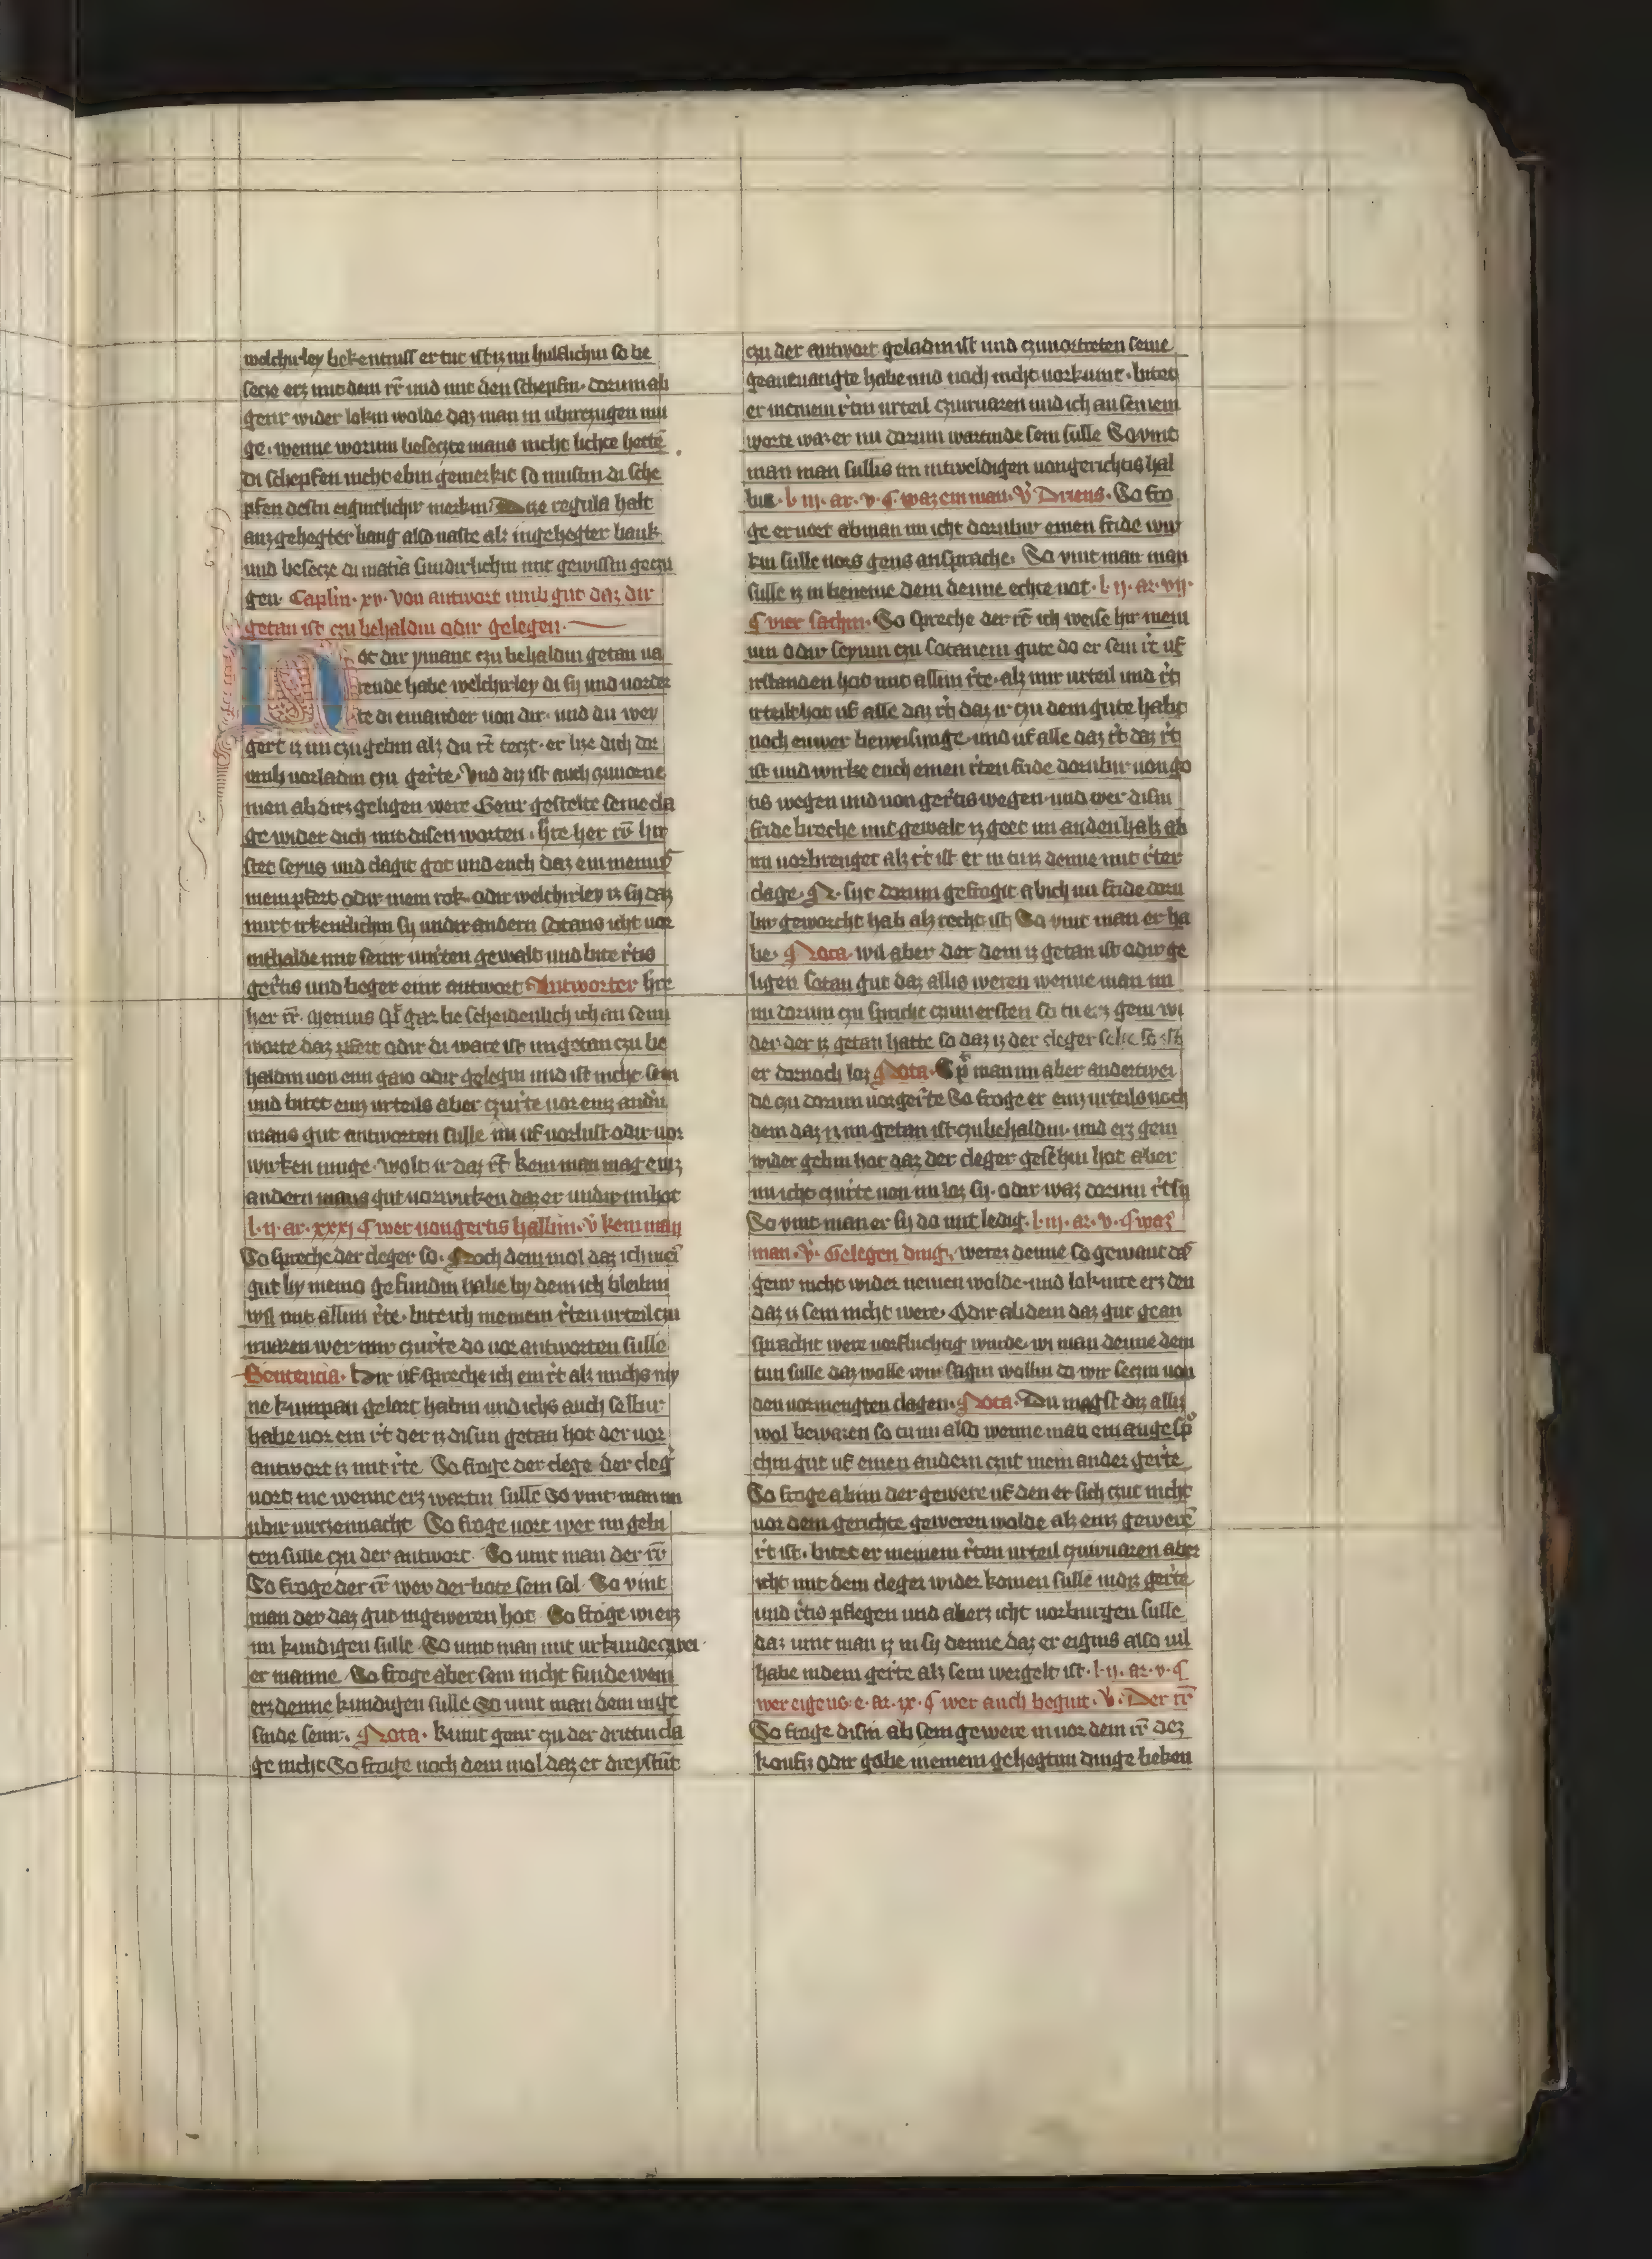 welchirley bekentniss er tut ist iz im hulflichin so be
secze erz mit dem rt und mit den schepfin dorum ab
genr wider lokin wolde daz man in ubirczugen mu
ge wenne worum beseczte mans nicht lichte hette
di schepfen nicht ebin gemerkit so mustin di sche
pfen destu eigintlichir merkin Dise regula halt
auz gehegter bang also vaste als in gehegter bank
und besecze di matia sundirlichin mit gewissin geczu
gen Caplin xv von antwort umb gut daz dir
getan ist czu behaldin odir gelegen
Hot dir ymant czu behaldin getan va
rende habe welchirley di sy und vorder
te di einander von dir und du wey
gert iz im czugebin als du rt teczt er lize dich dor
umb vorladin czu gerte Und diz ist auch czuvorne
men ab dirz geligen were Genr gestelte seine cla
ge wider dich mit disen worten hre her rir hir
stet seyus und clagit got und euch daz ein mennis
mein pfert odir mein rok odir welchirley iz sy daz
mirt irkentlichin sy undir andern sotans icht vor
inthalde mit seinr unrten gewalt und bite rtis
gertis und beger einr antwort Antworter hre
her rr Mennis spt gar be scheidenlich ich an seim
worte daz pfert odir di ware ist im getan czu be
haldin von eim gaio odir gelegin und ist nicht sein
und bitet einz urteils aber czu rte vor einz andir
mans gut antworten sulle im uf vorlust odir vor
wirken muge wolt ir daz rt kein man mag einz
andern mans gut vorwirken daz er undir im hot
l ii ar xxxi ¶ wer von gertis hallin v kein man
So spreche der cleger so Noch dem mol daz ich mei
gut by meino gefundin habe by dem ich bleibin
wil mit allim rte bite ich meinem rten urteil czu
irvaren wer mir czu rte do vor antworten sulle
Sentencia hir uf spreche ich ein rt als michs my
ne kumpan gelart habin und ichs auch selbir
habe vor ein rt der iz disim getan hot der vor
antwort iz mit rte So froge der clege der cleg
vort me wenne erz wartin sulle So vint man im
ubir virczennacht So froge vort wer im gebi
ten sulle czu der antwort So vint man der rir
So froge der rr wer der bote sein sol So vint
man der daz gut in geweren hot So froge wi erz
im kundigen sulle So vint man mit urkunde czwei
er manne So froge aber sein nicht funde wem
erz denne kundigen sulle So vint man dem inge
sinde seinr Nota kumt genr czu der drittin cla
ge nicht So froge noch dem mol daz er dreystut
czu der antwort geladin ist und czuvortreten seine
geanevangte habe und noch nicht vorkumt bitet
er meinem rtin urteil czuirvaren und ich an seinem
worte waz er nu dorum wartinde sein sulle So vint
man man sullis im intweldigen von gerichtis hal
bin l iii ar v ¶ waz ein man v Driens So fro
ge er vort ab man im icht dorubir einen fride wir
kin sulle vors gens ansprache So vint man man
sulle iz in beneme dem denne echte not l ii ar vii
¶ vier sachin So spreche der rr ich weise hir mein
nn odir seyum czu sotanem gute do er sein rt uf
irstanden hot mit allim rte als mir urteil und rt
irteilt hot uf alle daz rt daz ir czu dem gute habt
noch euwer beweisunge und uf alle daz rt daz rt
ist und wirke euch einen rten fride dorubir von go
tis wegen und von gertis wegen und wer disin
fride breche mit gewalt iz geet im an den hals ab
im vorbrenget als rt ist er in tu iz denne mit rter
clage Ar sint dorum gefrogit ab ich im fride doru
bir geworcht hab als recht ist So vint man er ha
be ¶ Nota wil aber der dem iz getan ist odir ge
ligen sotan gut daz allis weren wenne man im
im dorum czu spricht czum ersten so tu erz gein wi
der der iz getan hatte so daz iz der cleger sehe so ist
er dornoch loz Nota Spt man im aber anderwei
de czu dorum vor gerte So froge er einz urteils noch
dem daz iz im getan ist czubehaldin und erz gein
wider gebin hot daz der cleger gesehin hot aber
im icht czu rte von im loz sy odir waz dorum rt sy
So vint man er sy do mit ledig l iii ar v ¶ waz
man v Gelegen ding werez denne so gewant daz
genr nicht wider nemen wolde und loknte erz den
daz iz sein nicht were Odir ab dem daz gut gean
spracht were vorfluchtig wurde wi man denne dem
tun sulle daz wolle wir sagin wollin do wir seczin von
den vormengten clagen Nota Du magst diz allis
wol bewaren so tu im also wenne man ein ange sp
chin gut uf einen andern czut in ein ander gerte
So froge ab im der gewere uf den er sich czut nicht
vor dem gerichte geweren wolde als einz gewere
rt ist bitet er meinem rten urteil czuirvaren aber
icht mit dem cleger wider komen sulle in diz gerte
und rtis pflegen und aberz icht vorburgen sulle
daz vint man iz in sy denne daz er eigins also vil
habe in dem gerte als sein wergelt ist l ii ar v ¶
wer eigens e ar ix ¶ wer auch begint v Der rr
So froge disin ab sein gewere in vor dem rr dez
koufiz odir gobe in einem gehegtim dinge beken